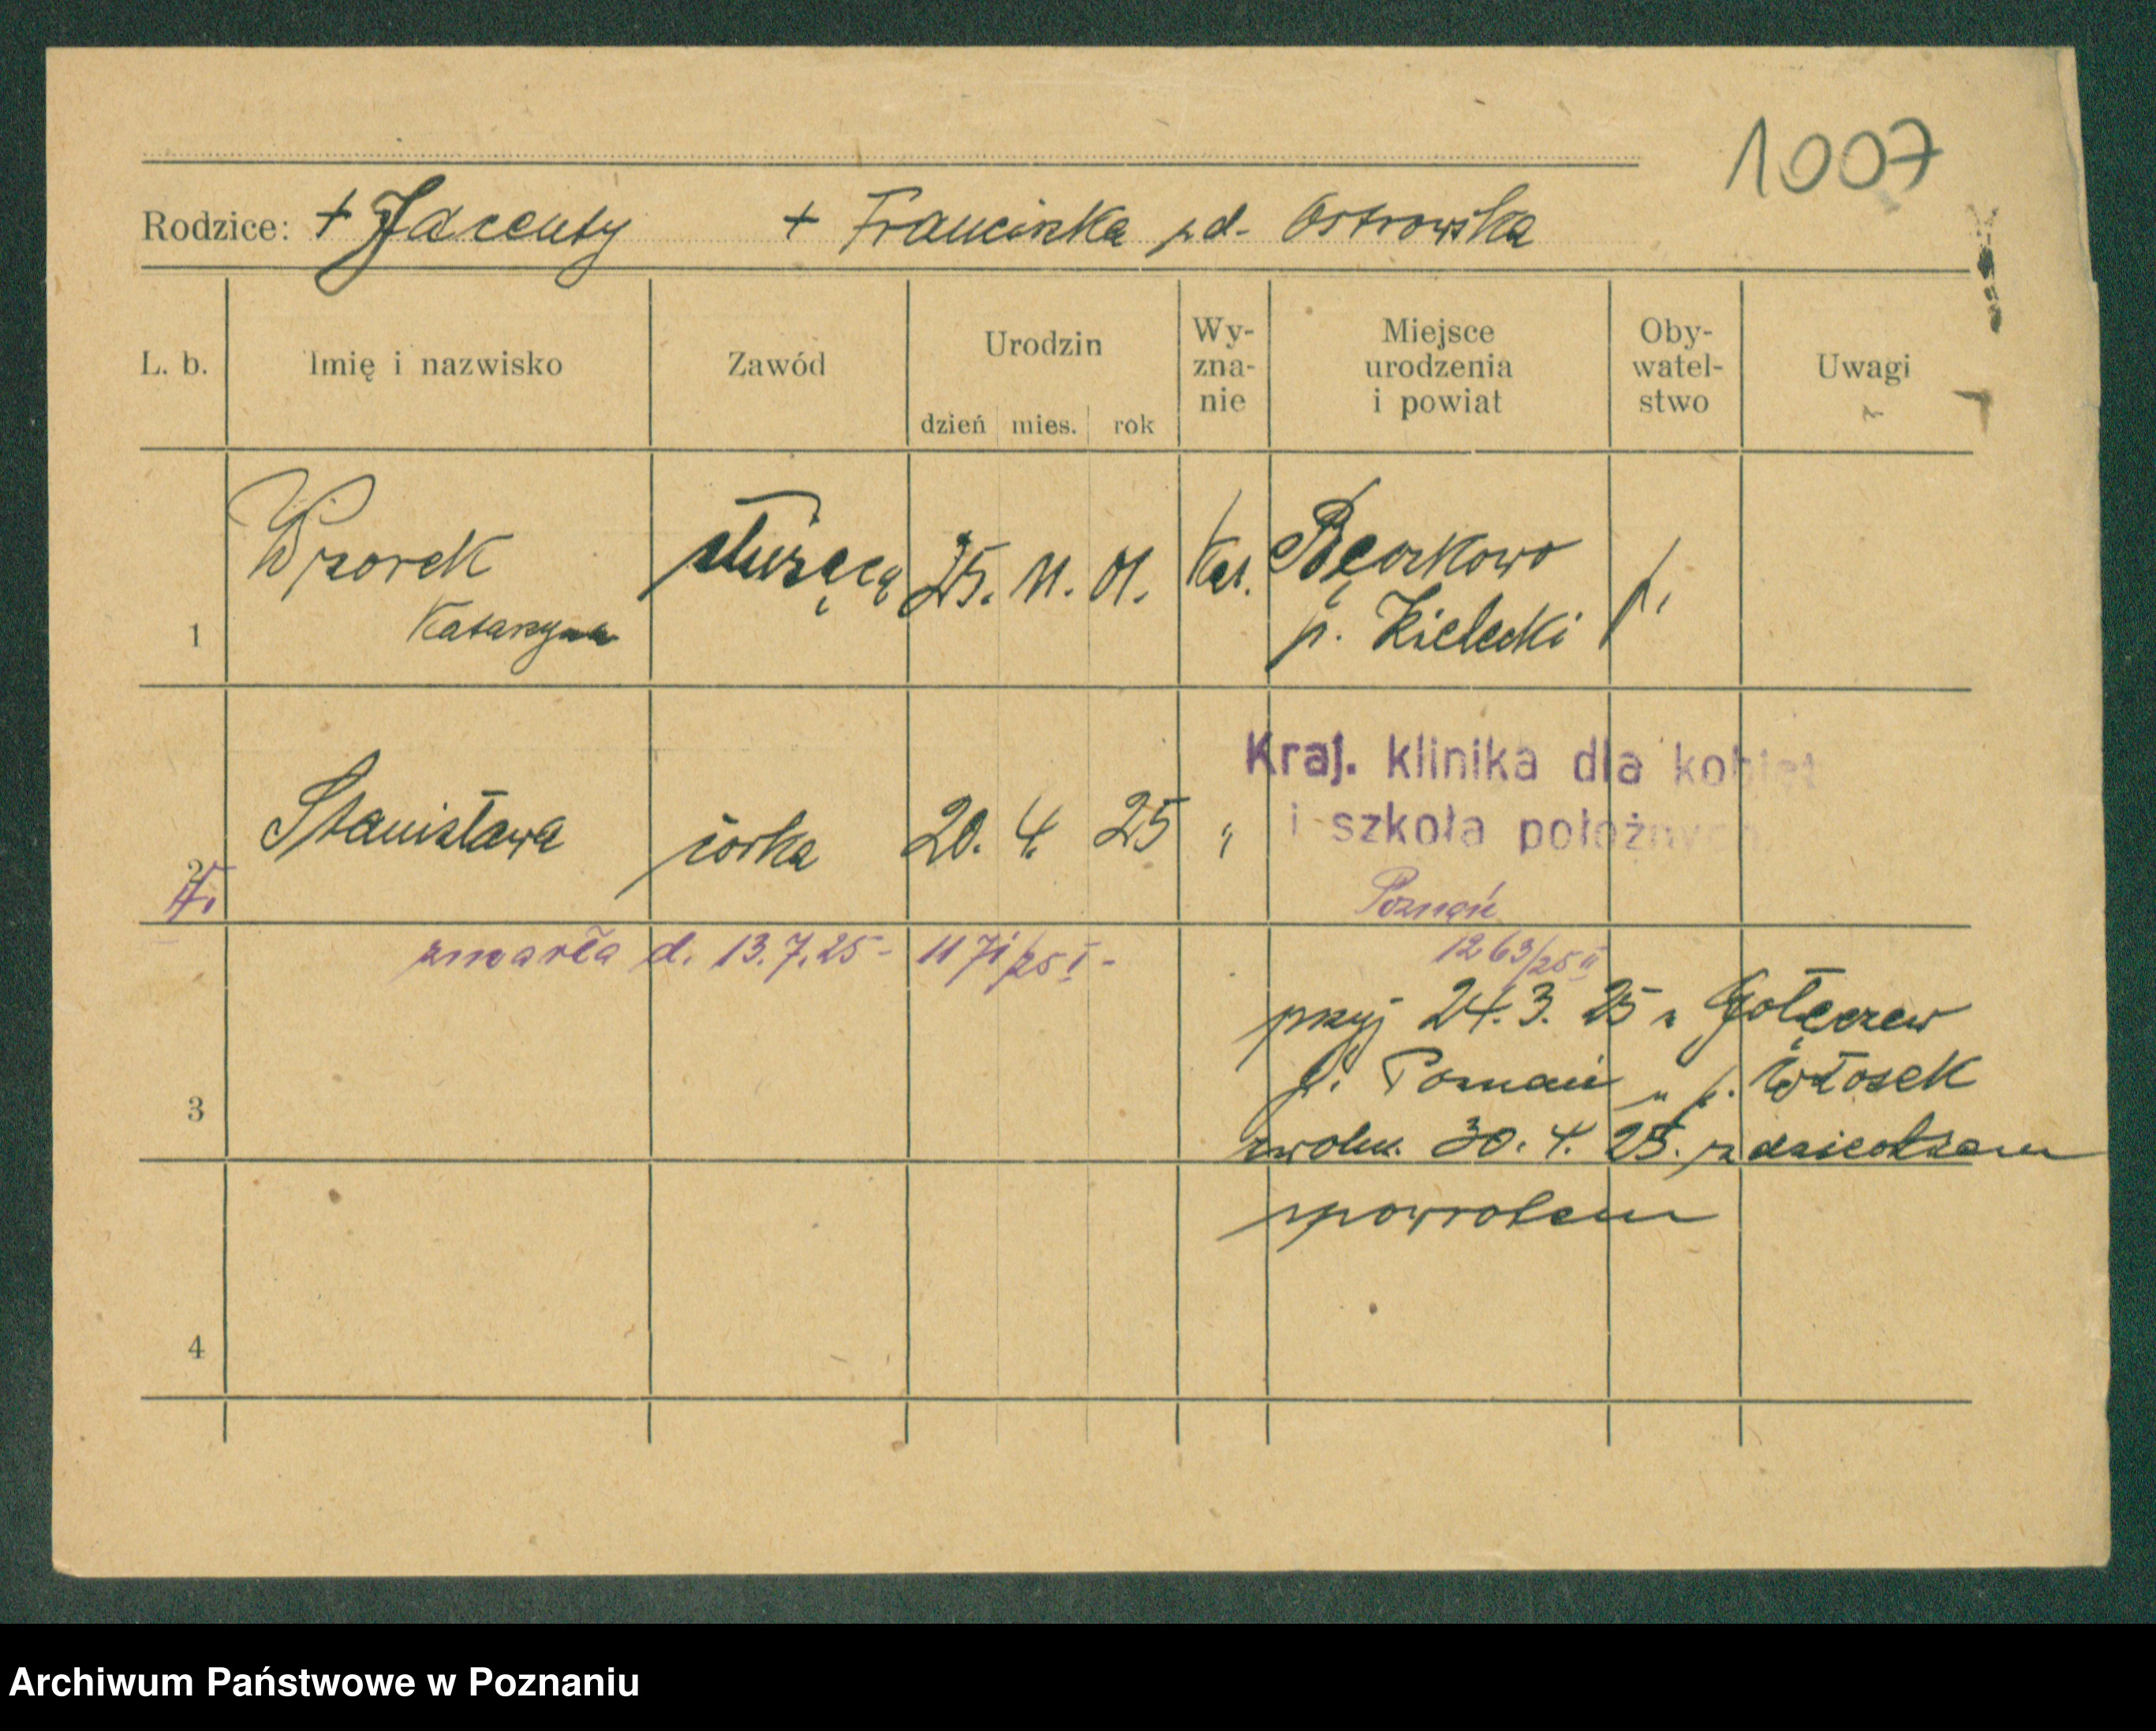 1007
Rodzice: + Jacenty + Franciszka zd. Ostrowska
L. b. Imię i nazwisko Zawód Urodzin dzień mies. rok Wy- zna- nie Miejsce urodzenia i powiat Oby- watel- stwo Uwagi
1 Wzorek Katarzyna służącą 25. 11. 01. Kat. p. Kielecki p.
2 Stanisława córka 20. 4. 25 „ Kraj. klinika dla kobiet
i szkoła położnych
Poznań
zmarła d. 13.7.25 - 1171/25 I - 1263/25 II
przyj 24. 3. 25 z Gołęczew
p. Poznań u p. Włosek
3
zwoln. 30. 4. 25. z dzieckiem
spowrotem
4
Archiwum Państwowe w Poznaniu